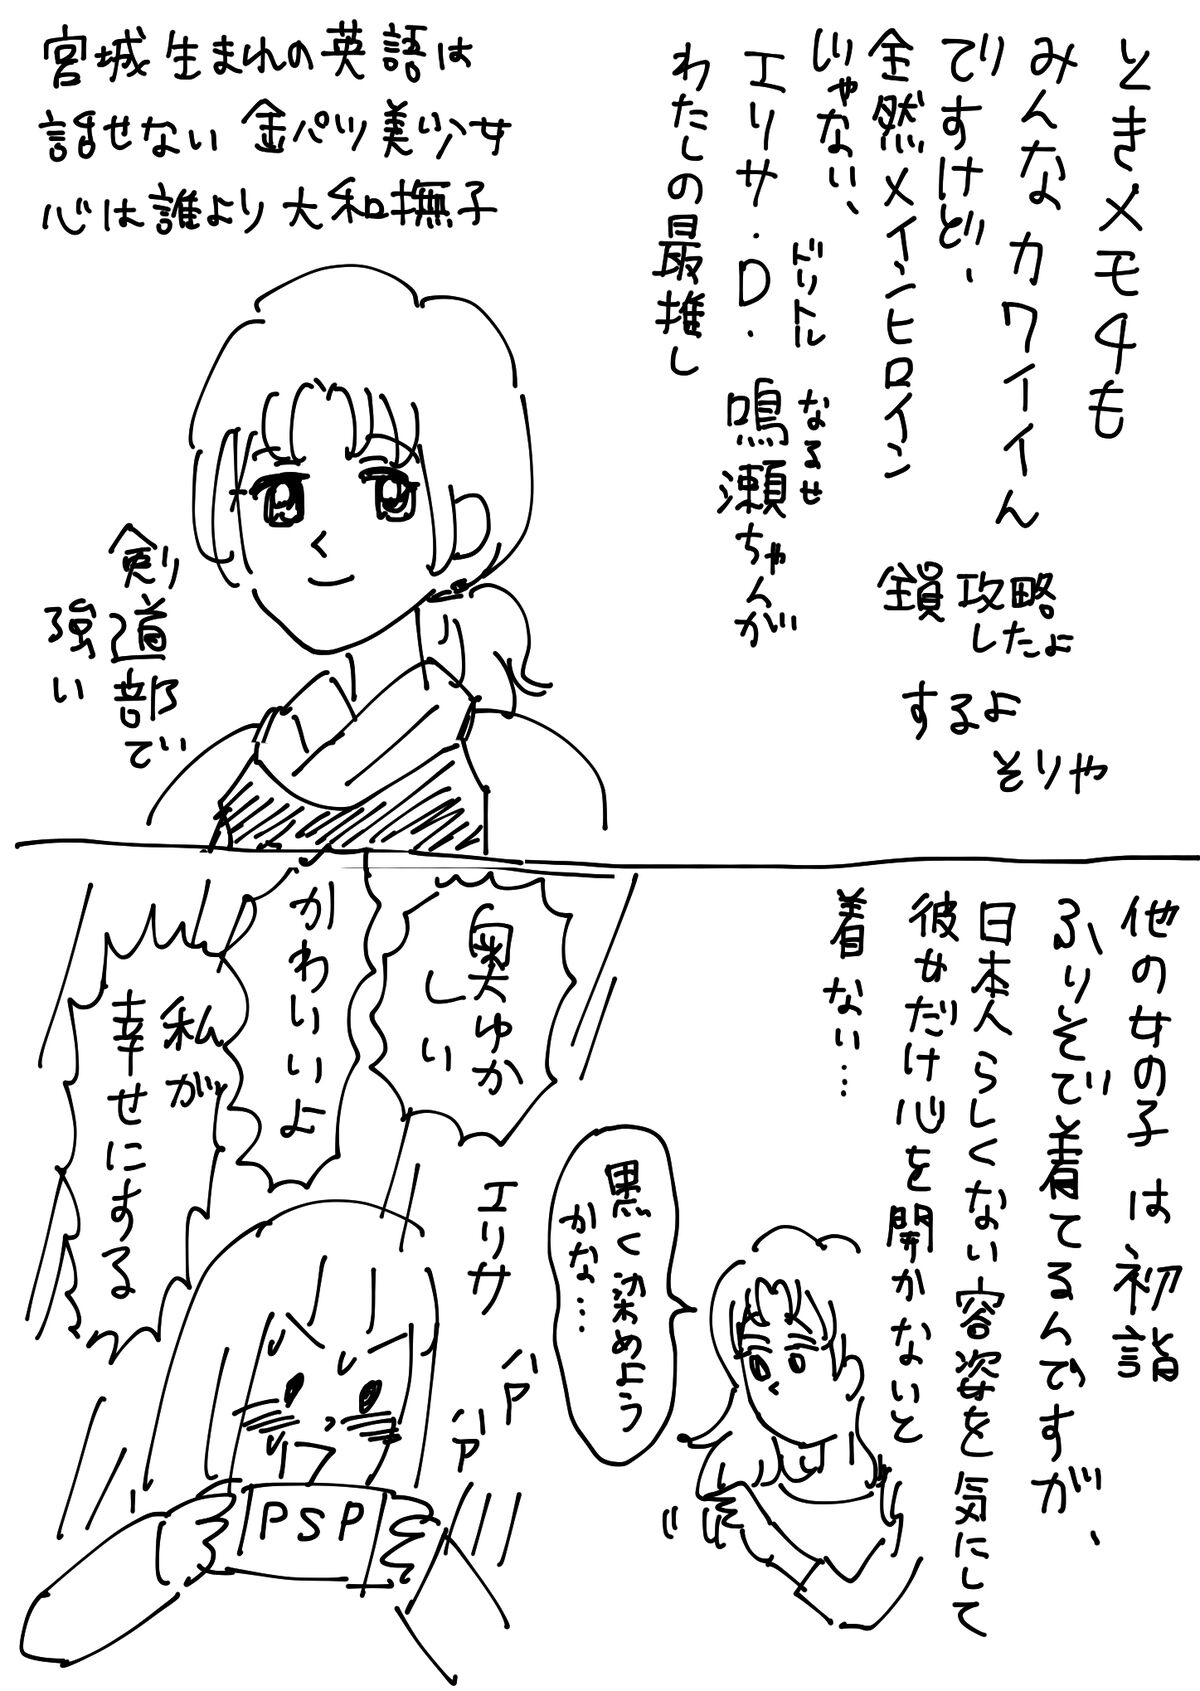 ときメモ4も
みんなカワイイん
ですけど、
全然メインヒロイン
じゃない、
エリサ・D・鳴瀬ちゃんが
ドリトル なるせ
わたしの最推し
全員攻略
したよ
するよ
そりゃ
宮城生まれの英語は
話せない 金パツ美少女
心は誰より大和撫子
剣道部で
強い
他の女の子は初詣
ふりそで着てるんですが、
日本人らしくない容姿を気にして
彼女だけ心を開かないと
着ない…
黒く染めよう
かな…
奥ゆか
しい
かわいいよ
エリサ
私が
幸せにする
ハァ
ハァ
PSP